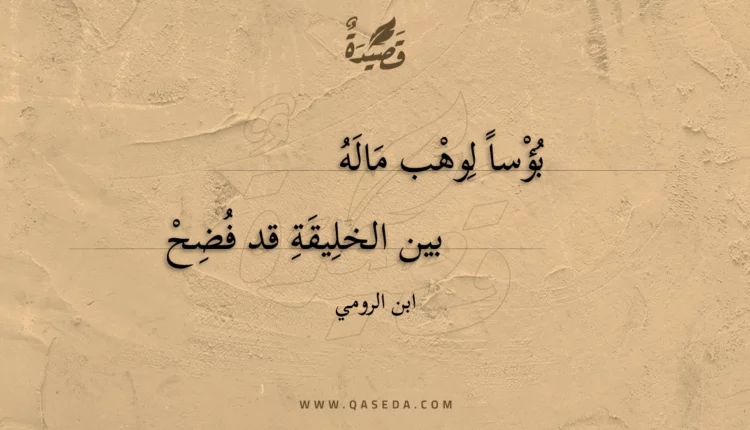 قَصِيْدَةٌ
بُؤْساً لِوهْب مَالَهُ
بين الخلِيقَةِ قد فُضِحْ
ابن الرومي
WWW.QASEDA.COM